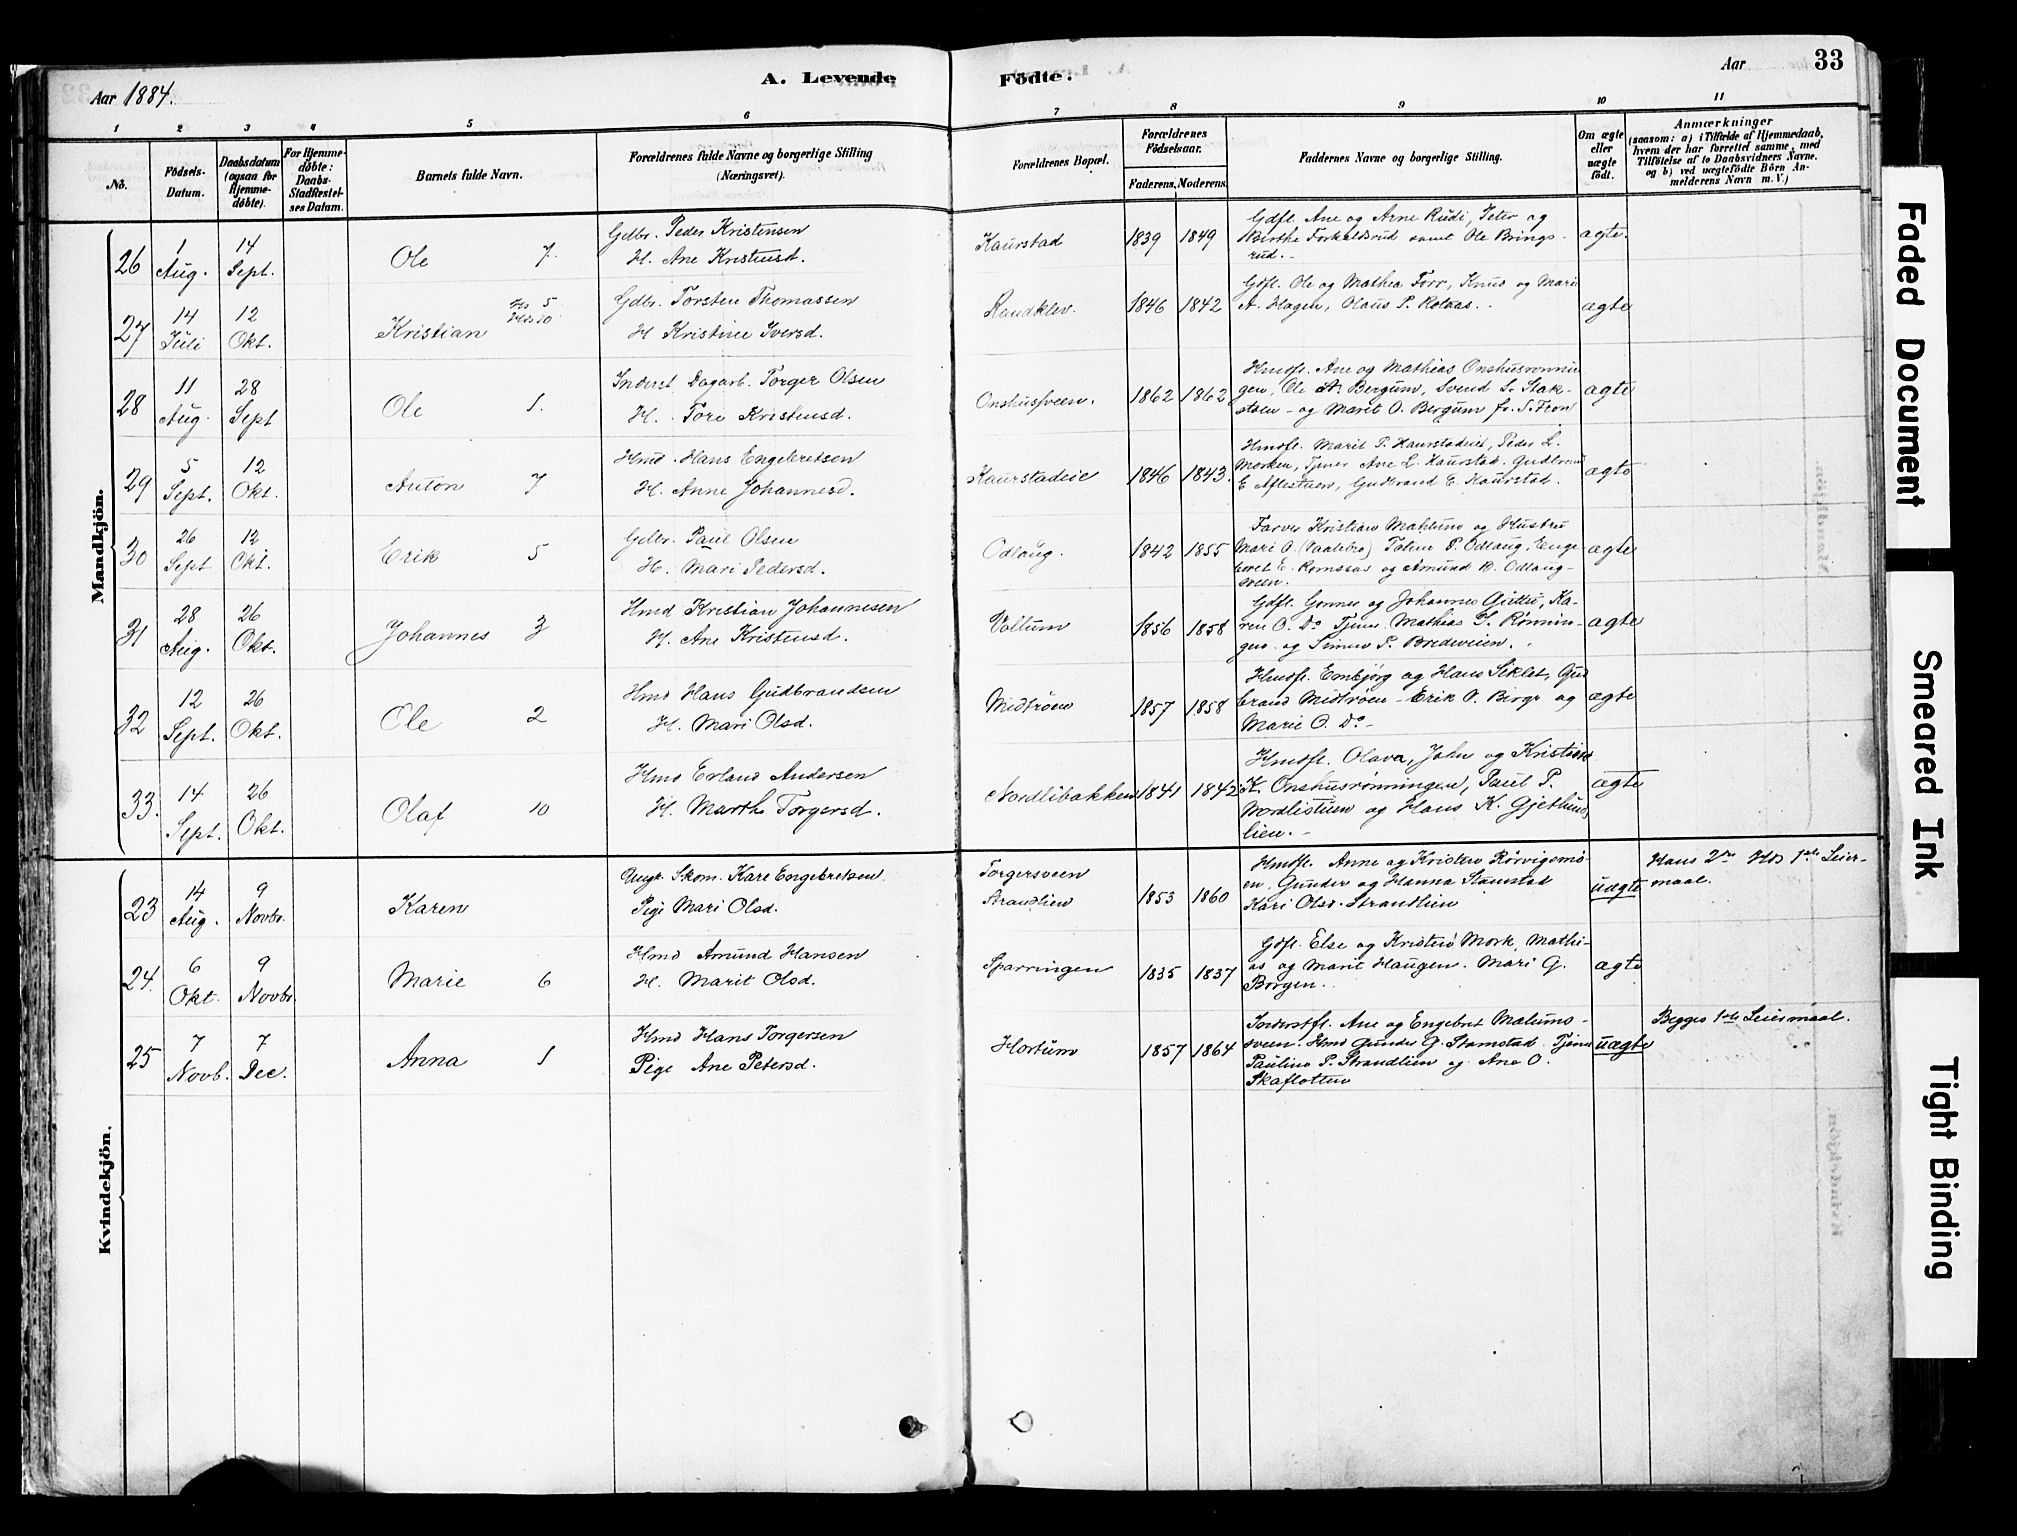 Aar 1884.
A. Levende
Födte.
Aar
33
1
2
3
4
5
6
7
8
9
10
11
No.
Födsels-
Datum.
Daabsdatum
(ogsaa for
Hjemme-
döbte).
For Hjemme-
döbte:
Daabs-
Stadfæstel-
ses Datum.
Barnets fulde Navn.
Forældrenes fulde Navne og borgerlige Stilling
(Næringsvei).
Forældrenes Bopæl.
Forældrenes
Födselsaar.
Faderens.
Moderens.
Faddernes Navne og borgerlige Stilling.
Om ægte
eller
uægte
födt.
Anmærkninger
(saasom: a) i Tilfælde af Hjemmedaab,
hvem der har forrettet samme, med
Tilföielse af to Daabsvidners Navne,
og b) ved uægtefödte Börn An-
melderens Navn m. V.)
Mandkjön.
26
1 Aug.
14 Sept.
Ole 7
Gdbr. Peder Kristensen
H. Ane Kristensd.
Kaurstad
1839 1849
Gdfl. Ane og Arne Rudi, Peter og
Birthe Forkalsrud samt Ole Brings-
rud.-
ægte.
27
14 Juli
12 Okt.
Kristian
Gdbr. Torsten Thomassen
H Kristine Iversd.
Randklev.
1846 1842
Gdfl. Ole og Mathea Forr, Knud og Mari
A. Hagen, Olaus P. Rolaas.
ægte
28
11 Aug.
28 Sept
Ole 1.
Inderst Dagarb. Torger Olsen
H. Tore Kristensd.
Onshussveen.
1862 1862
Hmdfl. Ane og Mathias Onshusrønnin
gen, Ole A. Bergum, Svend S. Slak-
stoen - og Marit O. Bergum fr. S. Fron
ægte
29
5 Sept.
12 Okt.
Anton 7
Hmd. Hans Engebretsen
H. Anne Johannesd.
Kaurstadeie
1846 1843.
Hmdfl. Marit P. Kaurstadeie, Peder L.
Morken, Tjener Ane L. Kaurstad. Gudbrand
E Aflestuen, Gudbrand E. Kaurstad.
ægte
30
26 Sept
12 Okt.
Erik 5
Gdbr. Paul Olsen
H. Mari Pedersd.
Odlaug.
1842 1855
Farver Kristian Mahlum og Hustru
Mari O. (Vaalebro) Johan P. Odlaug, Enge
bret E. Romsaas og Amund B. Odlaug-
sveen.
ægte
31
28 Aug.
26 Okt.
Johannes 3
Hmd Kristian Johannesen
H. Ane Kristensd.
Vollum
1856 1858
Gdfl. Gonner og Johannes Gutto, Ka-
ren O. Do Tjener Mathias S. Rønnin-
gen og Simen P. Bredeveien.
ægte
32
12 Sept.
26 Okt.
Ole 2
Hmd Hans Gudbrandsen
H. Mari Olsd.
Midtrøen
1857 1858
Hmdfl. Embjørg og Hans Siklet, Gud
brand Midtrøen - Erik O. Birge og
Marie O. Do -
ægte
33.
14 Sept.
26 Okt.
Olaf 10
Hmd Erland Andersen
H. Marthe Torgersd.
Nordlibakken
1841 1842
Hmdfl. Olava, John og Kristian
K. Onshusrønningen, Paul P.
Nordlistuen og Hans K. Gjethus
lien. -
ægte
Kvindekjön.
23
14 Aug.
9 Novbr.
Karen
Ungk. Skom. Kare Engebretsen
Pige Mari Olsd.
Torgersveen
Strandlien
1853 1860
Hmdfl. Anne og Kristen Rørvigsmo-
en. Gunder og Hanna Stamstad
Kari Olsd. Strandlien
uægte
Hans 2den Hds 1ste Leier-
maal.
24.
6 Okt.
9 Novbr.
Marie 6
Hmd Amund Hansen
H. Marit Olsd.
Sparringen
1835 1837
Gdfl. Else og Kristen Mork, Mathi-
as og Marit Haugen. Mari G.
Borgen.
ægte
25
7 Novb.
7 Dec.
Anna 1
Hmd Hans Torgersen
Pige Ane Petersd.
Hortum
1857 1864
Inderstfl. Ane og Engebret Malums-
sveen. Hmd Gunder G. Stamstad. Tjener
Pauline P. Strandlien og Ane O.
Skaflotten
uægte
Begges 1ste Leiermaal.
Faded Document
Smeared Ink
Tight Binding